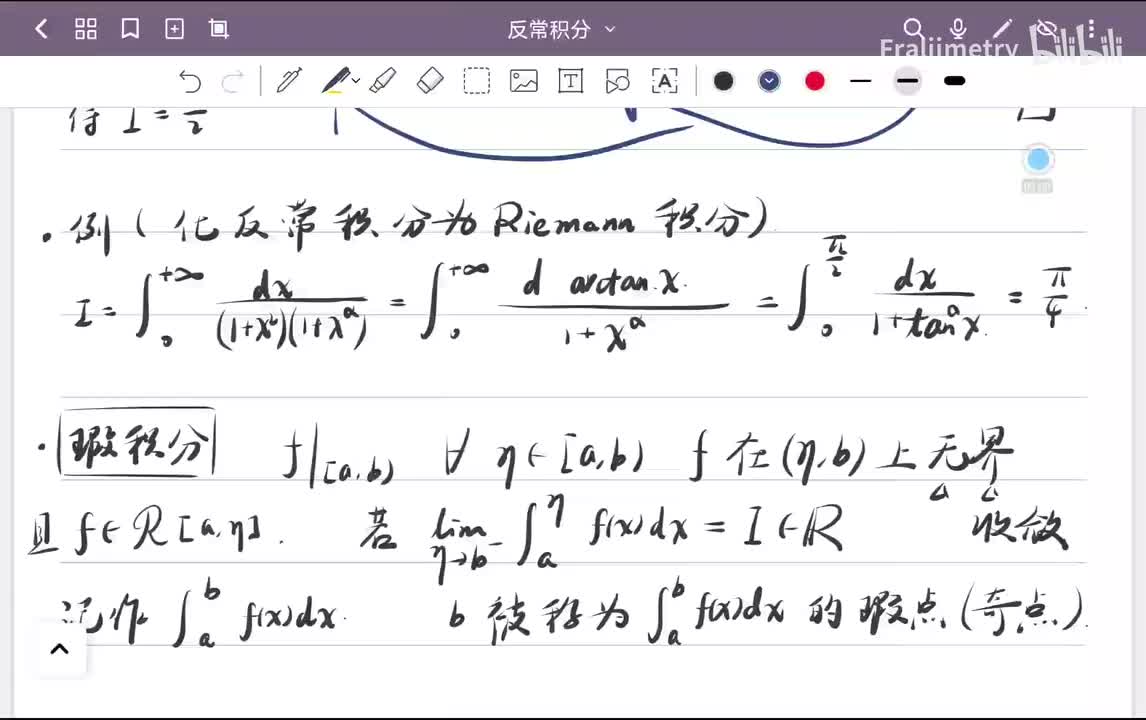 反常积分
Fraljimetry bilibili
T A
得 I = π/2
· 例 ( 化反常积分为 Riemann 积分 )
I = ∫₀^{+∞} dx / (1+x²)(1+x^α) = ∫₀^{+∞} d arctan x / 1+x^α = ∫₀^{π/2} dx / 1+tan^α x = π/4 .
· 瑕积分 f|[a,b) ∀ η∈[a,b) f 在 (η,b) 上无界
且 f∈R[a,η]. 若 lim_{η→b⁻} ∫ₐ^η f(x)dx = I∈ℝ 收敛
记作 ∫ₐ^b f(x)dx. b 被称为 ∫ₐ^b f(x)dx 的瑕点 (奇点).